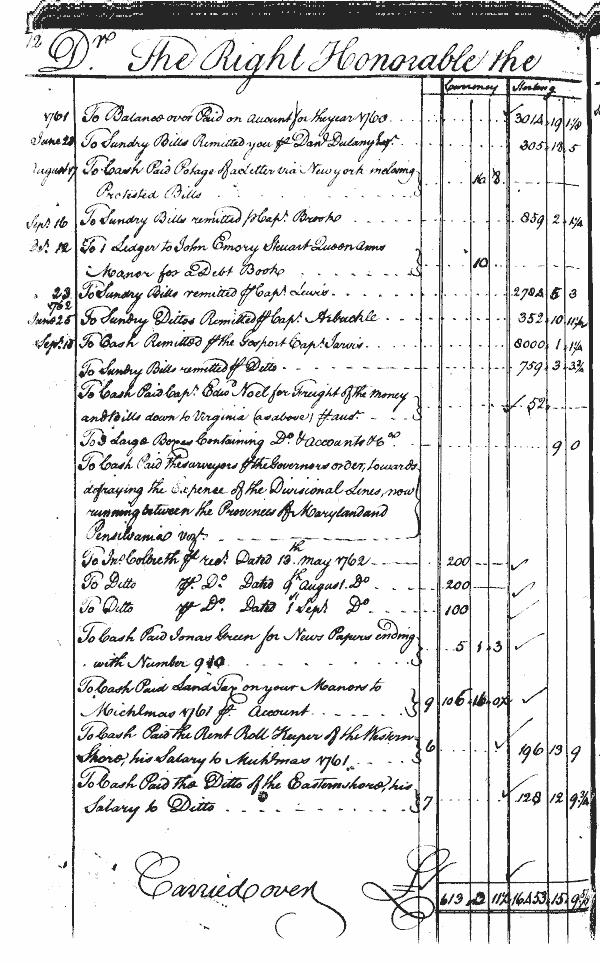 12
Dr. The Right Honorable the
Currency Sterling
1761 To Balance over Paid on account for the year 1760 3014 19 1¼
June 20 To Sundry Bills Remitted you Dan Dulany Esq. 305 18 5
August 17 To Cash Paid Postage of a Letter via New york inclosing
Protested Bills 16 8
Sept. 16 To Sundry Bills remitted Capt. Brooke 859 2 1¼
Dec. 12 To 1 Ledger to John Emory Steuart Queen Anns
Manor for a Debt Book 10
" 23 To Sundry Bills remitted Capt. Lewis 2784 5 3
1762
June 25 To Sundry Dittos Remitted Capt. Arbuckle 352 10 11½
Sept. 18 To Cash Remitted the Gosport Capt. Jarvis 8000 1 1¼
To Sundry Bills remitted Ditto 759 3 3¾
To Cash Paid Capt. Noel for Freight of the money
and Bills down to Virginia (as above) 52
To 3 Large Boxes Containing Do. & Accounts &c. 9 0
To Cash Paid the surveyors the Governors order, towards
defraying the Expense of the Divisional Lines, now
running between the Provinces of Maryland and
Pensilvania
To Jno. Colbreth rect. Dated 13th may 1762 200
To Ditto Do. Dated 9th August Do. 200
To Ditto Do. Dated 1st Sept. Do. 100
To Cash Paid Jonas Green for News Papers ending
with Number 5 1 3
To Cash Paid Land Tax on your Manors to
Michlmas 1761 Account 9 106 16
To Cash Paid the Rent Roll Keeper of the Western
Shore, his Salary to Michlmas 1761 6 196 13 9
To Cash Paid the Ditto of the Eastern shore, his
Salary to Ditto 7 128 12 9¾
Carried over 613 16453 15